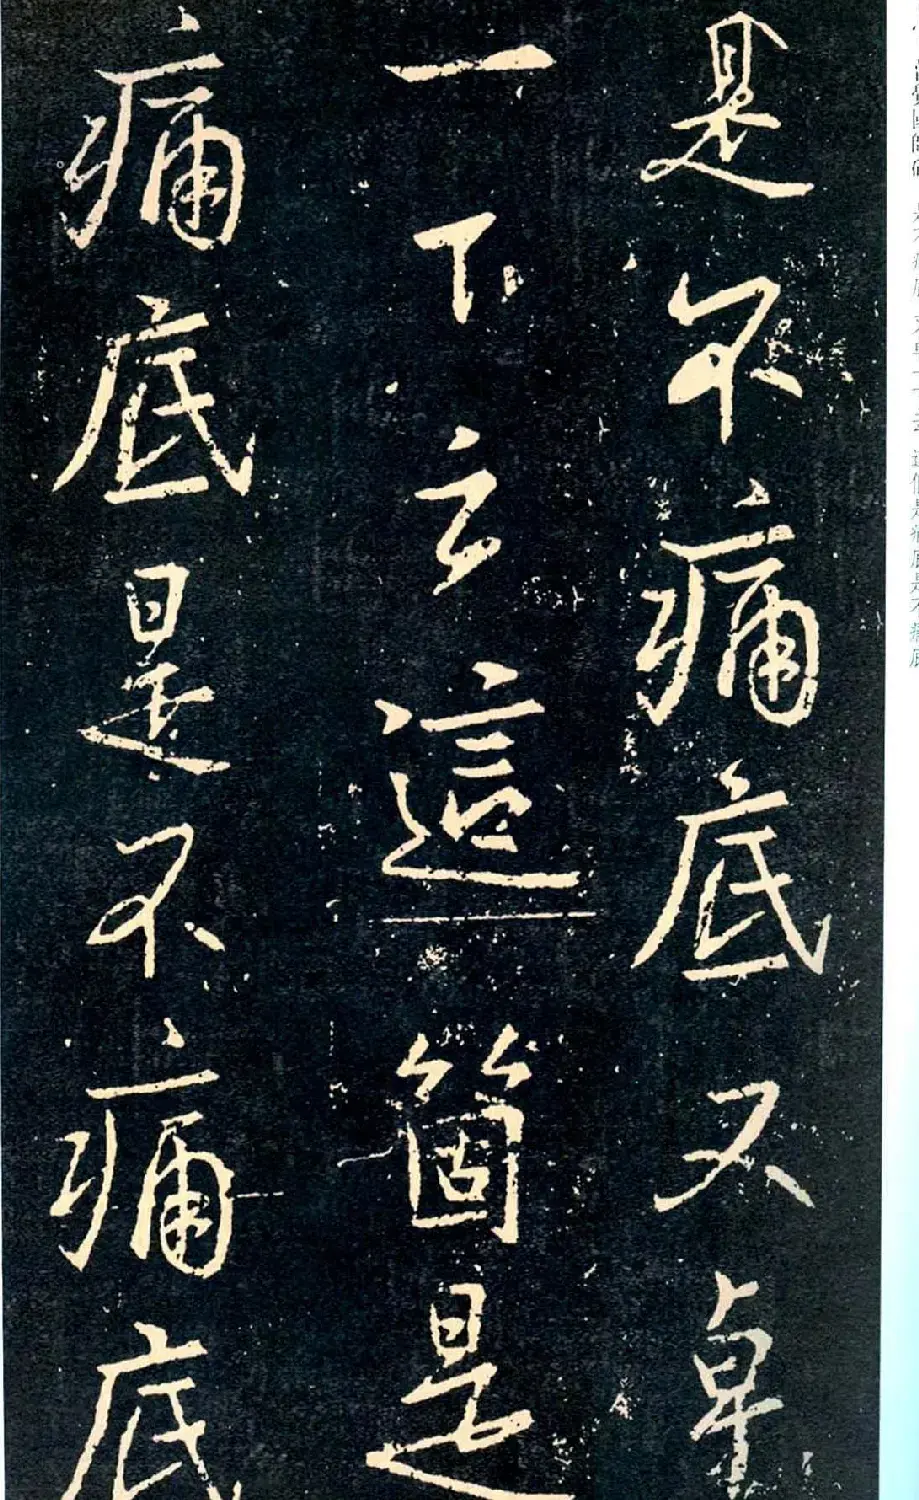 是不痛底又卓
一下云這箇是
痛底是不痛底